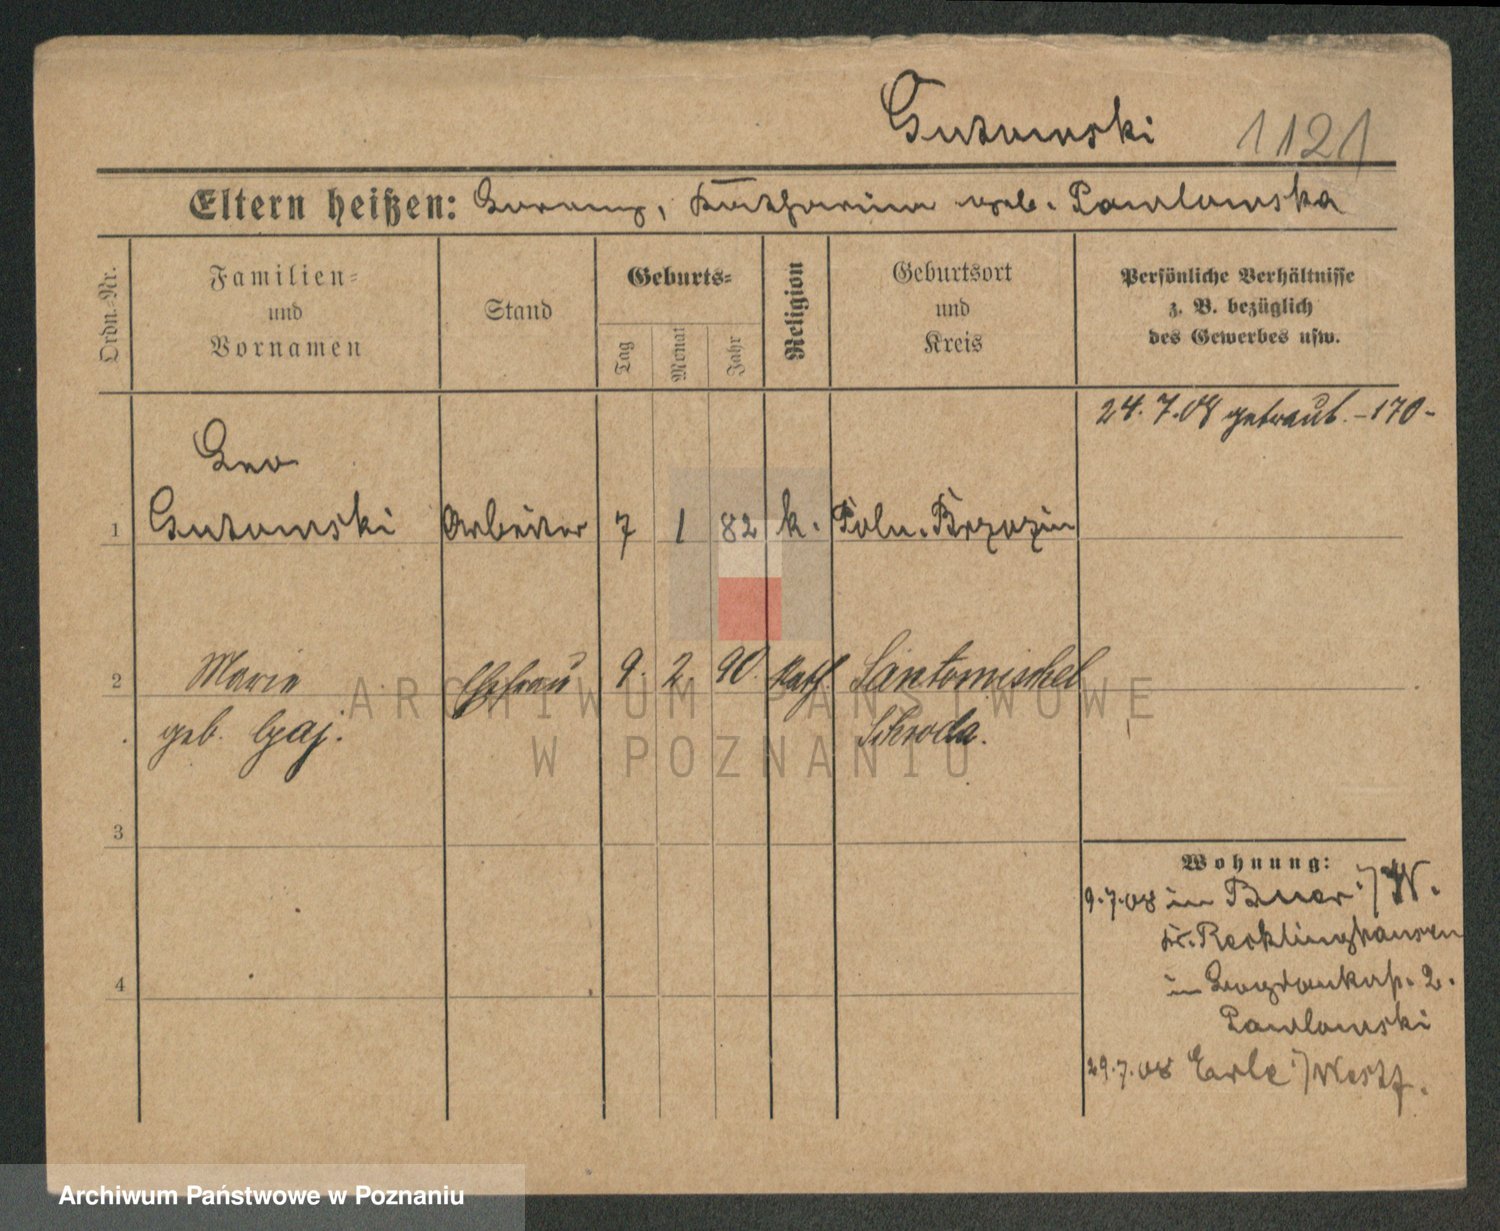 Gutowski 1121
Eltern heißen: Lorenz, Katharina geb. Pawlowska
Ordn.-Nr.
Familien-
und
Vornamen
Stand
Geburts-
Tag
Monat
Jahr
Religion
Geburtsort
und
Kreis
Persönliche Verhältnisse
z. B. bezüglich
des Gewerbes usw.
24. 7. 08 getraut. -170-
Leo
1 Gutowski Arbeiter 7 1 82 k. Poln. Brzozin
2 Marie Ehefrau 9. 2. 90. kath. Santomischel
geb. Gaj. Schroda.
3
4
Wohnung:
9.7.08 in Buer i/W.
Kr. Recklinghausen
in 2.
Pawlowski
29.7.08 Erle i/Westf.
ARCHIWUM PAŃSTWOWE
W POZNANIU
Archiwum Państwowe w Poznaniu